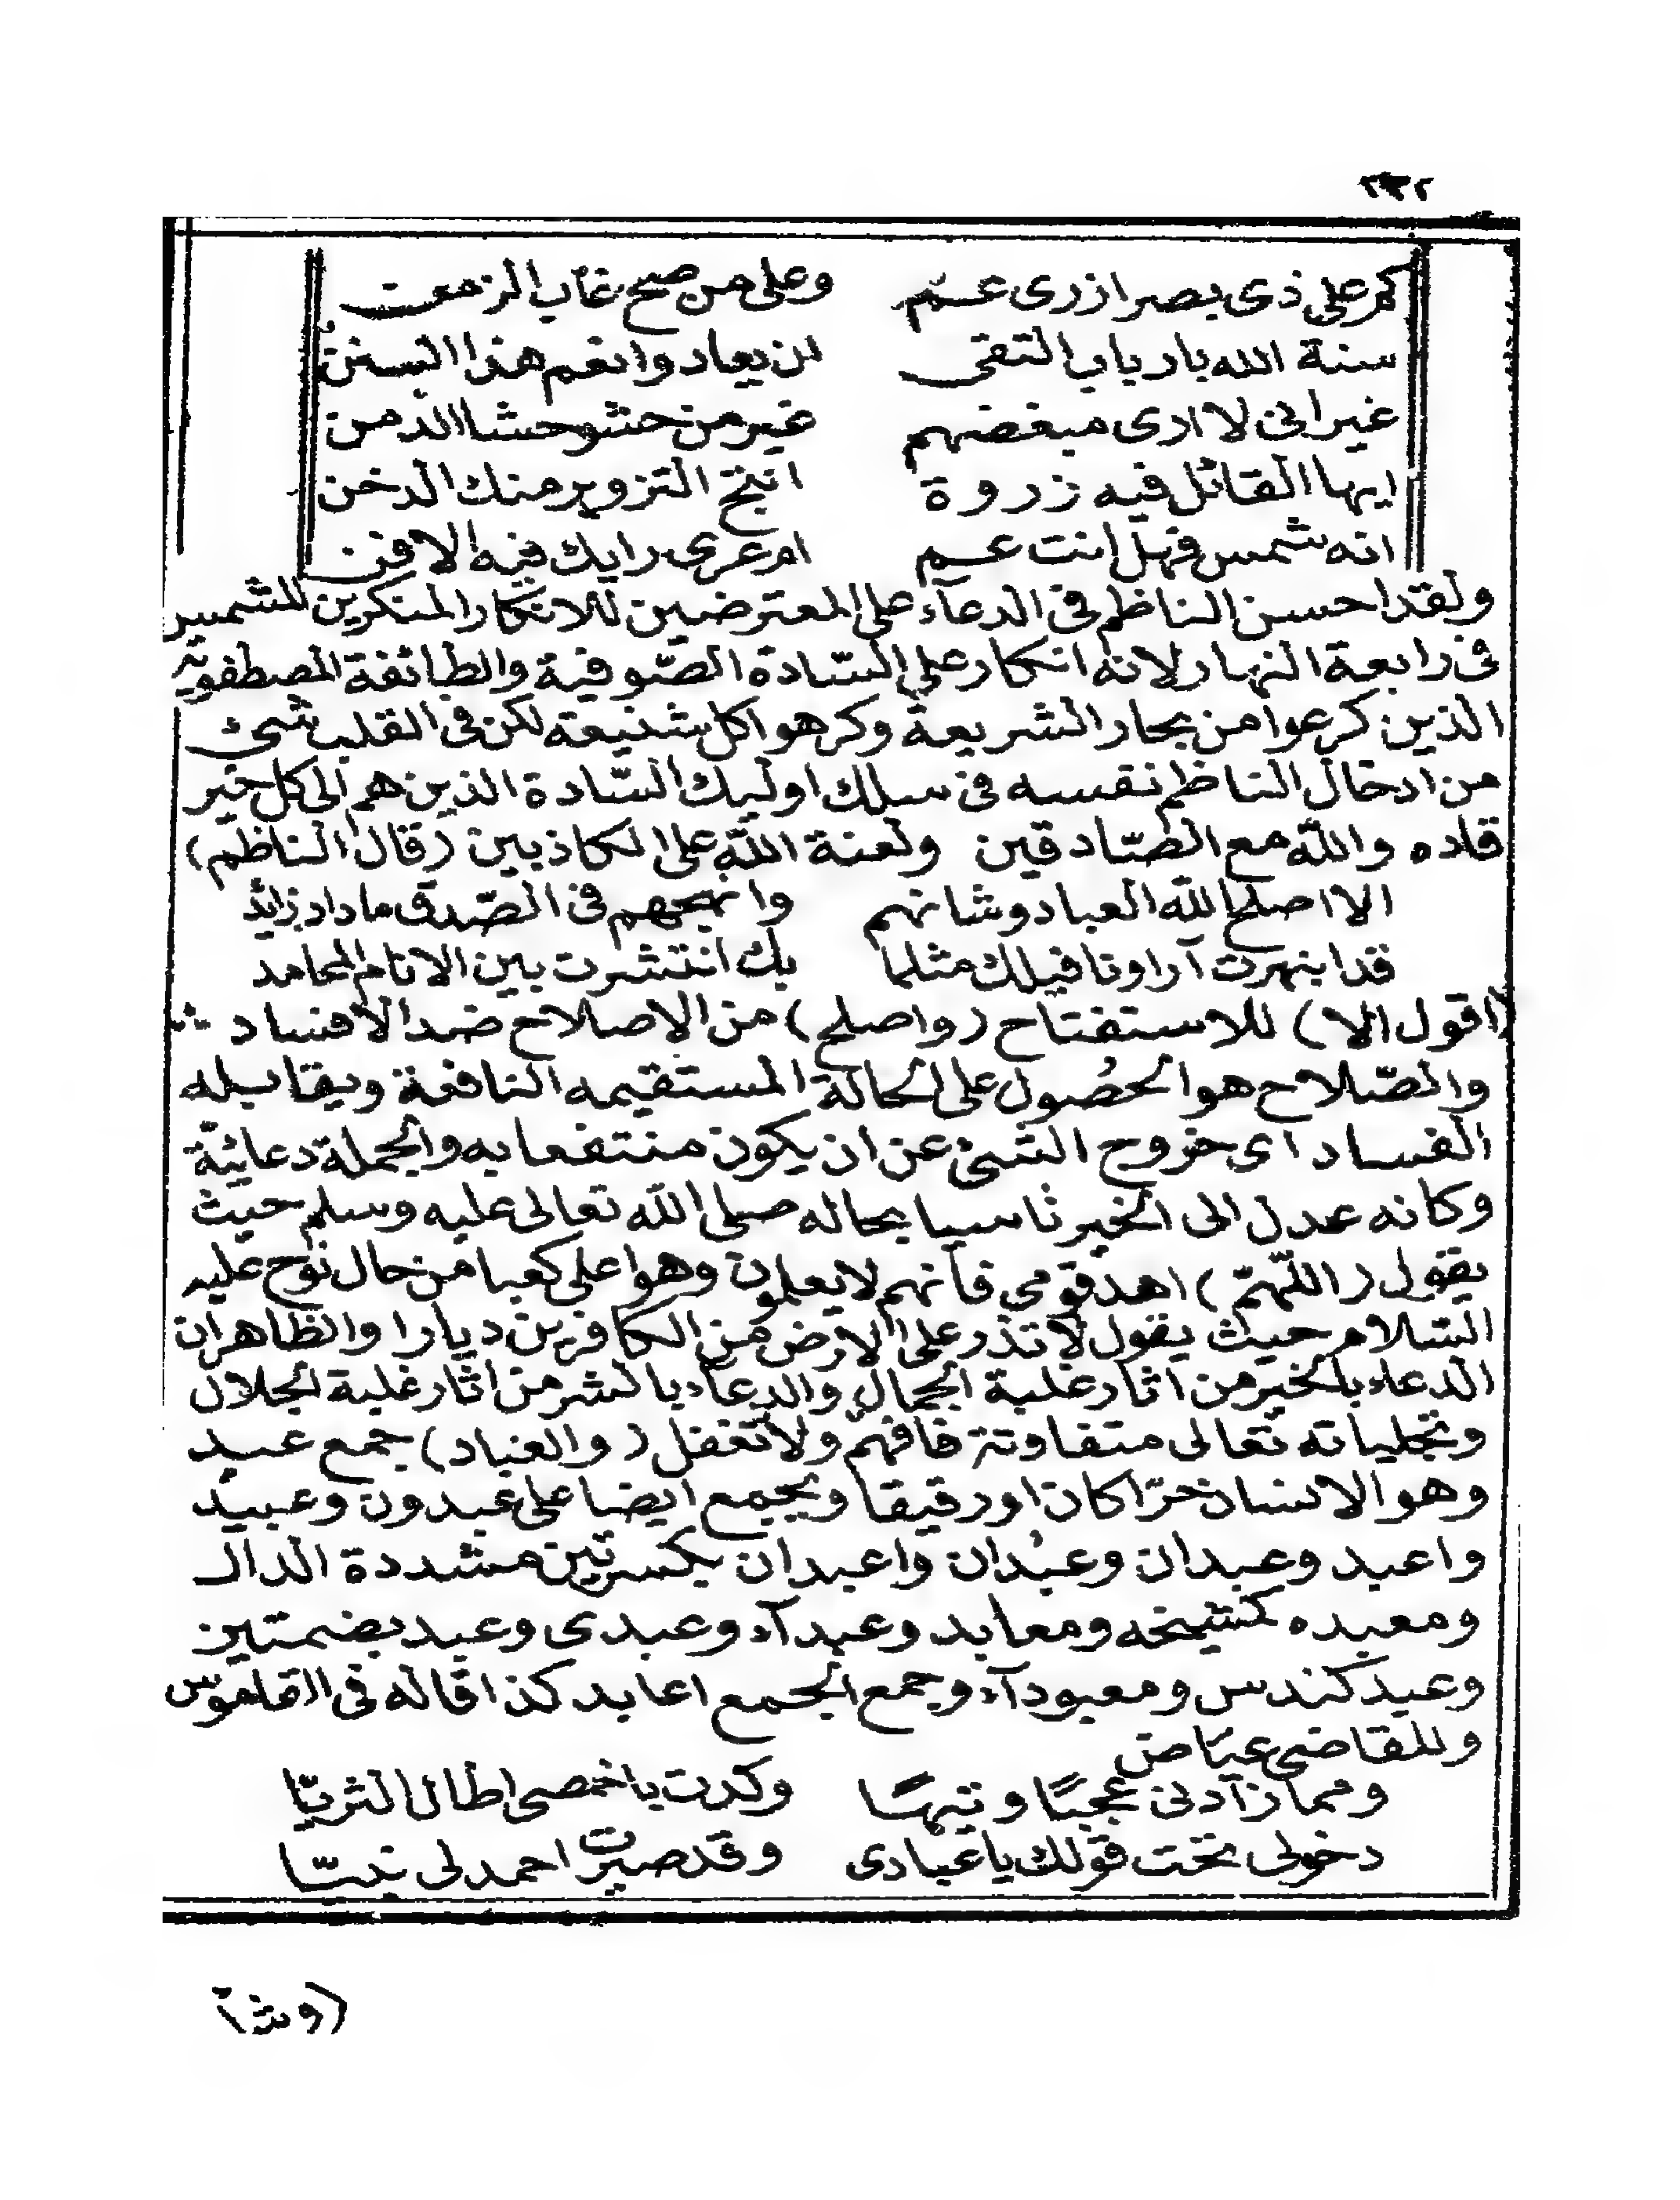 ٢٣٢
كم على ذى بصر ازرى عم وعلى من صح عاب الزمن
سنة الله بارباب التقى لن يعاد وانعم هذا السنن
غير انى لا ارى مبغضهم غير من حشو حشا الدمن
ايها القائل فيه زروة انتج التزوير منك الدخن
انه شمس فهل انت عم ام عرى رايك فيه الافن
ولقد احسن الناظم فى الدعآء على المعترضين للانكار المنكرين للشمس
فى رابعة النهار لانه انكار على السّادة الصّوفية والطائفة المصطفوية
الذين كرعوا من بحار الشريعة وكرهوا كل شنيعة لكن فى القلب شئ
من ادخال الناظم نفسه فى سلك اوليك السّادة الذين هم الى كل خير
قاده والله مع الصّادقين ولعنة الله على الكاذبين (قال الناظم)
الا اصلح الله العباد وشانهم وانهجهم فى الصّدق ما داد زائد
قد ابنهرت آراونا فيلك مثلما بك انتشرت بين الانام المحامد
(اقول الا) للاستفتاح (واصلح) من الاصلاح ضد الافساد
والصّلاح هو الحصُول على الحالة المستقيمه النافعة ويقابله
الفساد اى خروج الشئ عن ان يكون منتفعا به والجملة دعائيّة
وكانه عدل الى الخير تاسيا بحاله صلى الله تعالى عليه وسلم حيث
يقول (اللّهمّ) اهد قومى فانهم لا يعلمون وهو اعلى كعبا من حال نوح عليه
السّلام حيث يقول لا تذر على الارض من الكافرين ديارا والظاهر ان
الدعاء بالخير من اثار غلبة الجمال والدعآء بالشر من اثار غلبة الجلال
وتجلياته تعالى متفاوتة فافهم ولا تغفل (والعباد) جمع عبد
وهو الانسان حرّا كان او رقيقا ويجمع ايضا على عبدون وعبيد
واعبد وعبدان وعبُدان واعبدان بكسرتين مشددة الدال
ومعبده كمشيخه ومعابد وعبدآء وعبدى وعبد بضمتين
وعبد كندس ومعبودآء وجمع الجمع اعابد كذا قاله فى القاموس
وللقاضى عيّاض
ومما زآدنى عجبًا وتيهًا وكدت باخمصى اطال الثريّا
دخولى تحت قولك يا عبادى وقد صيرت احمد لى نبيّا
(وشا)